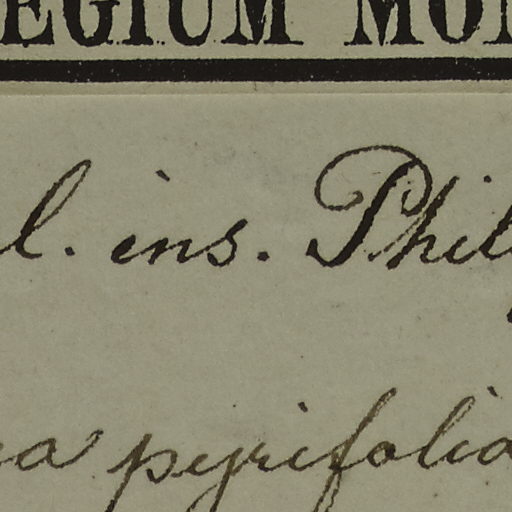 EGIUM MO
l. ins. Phil
a pyrifolia